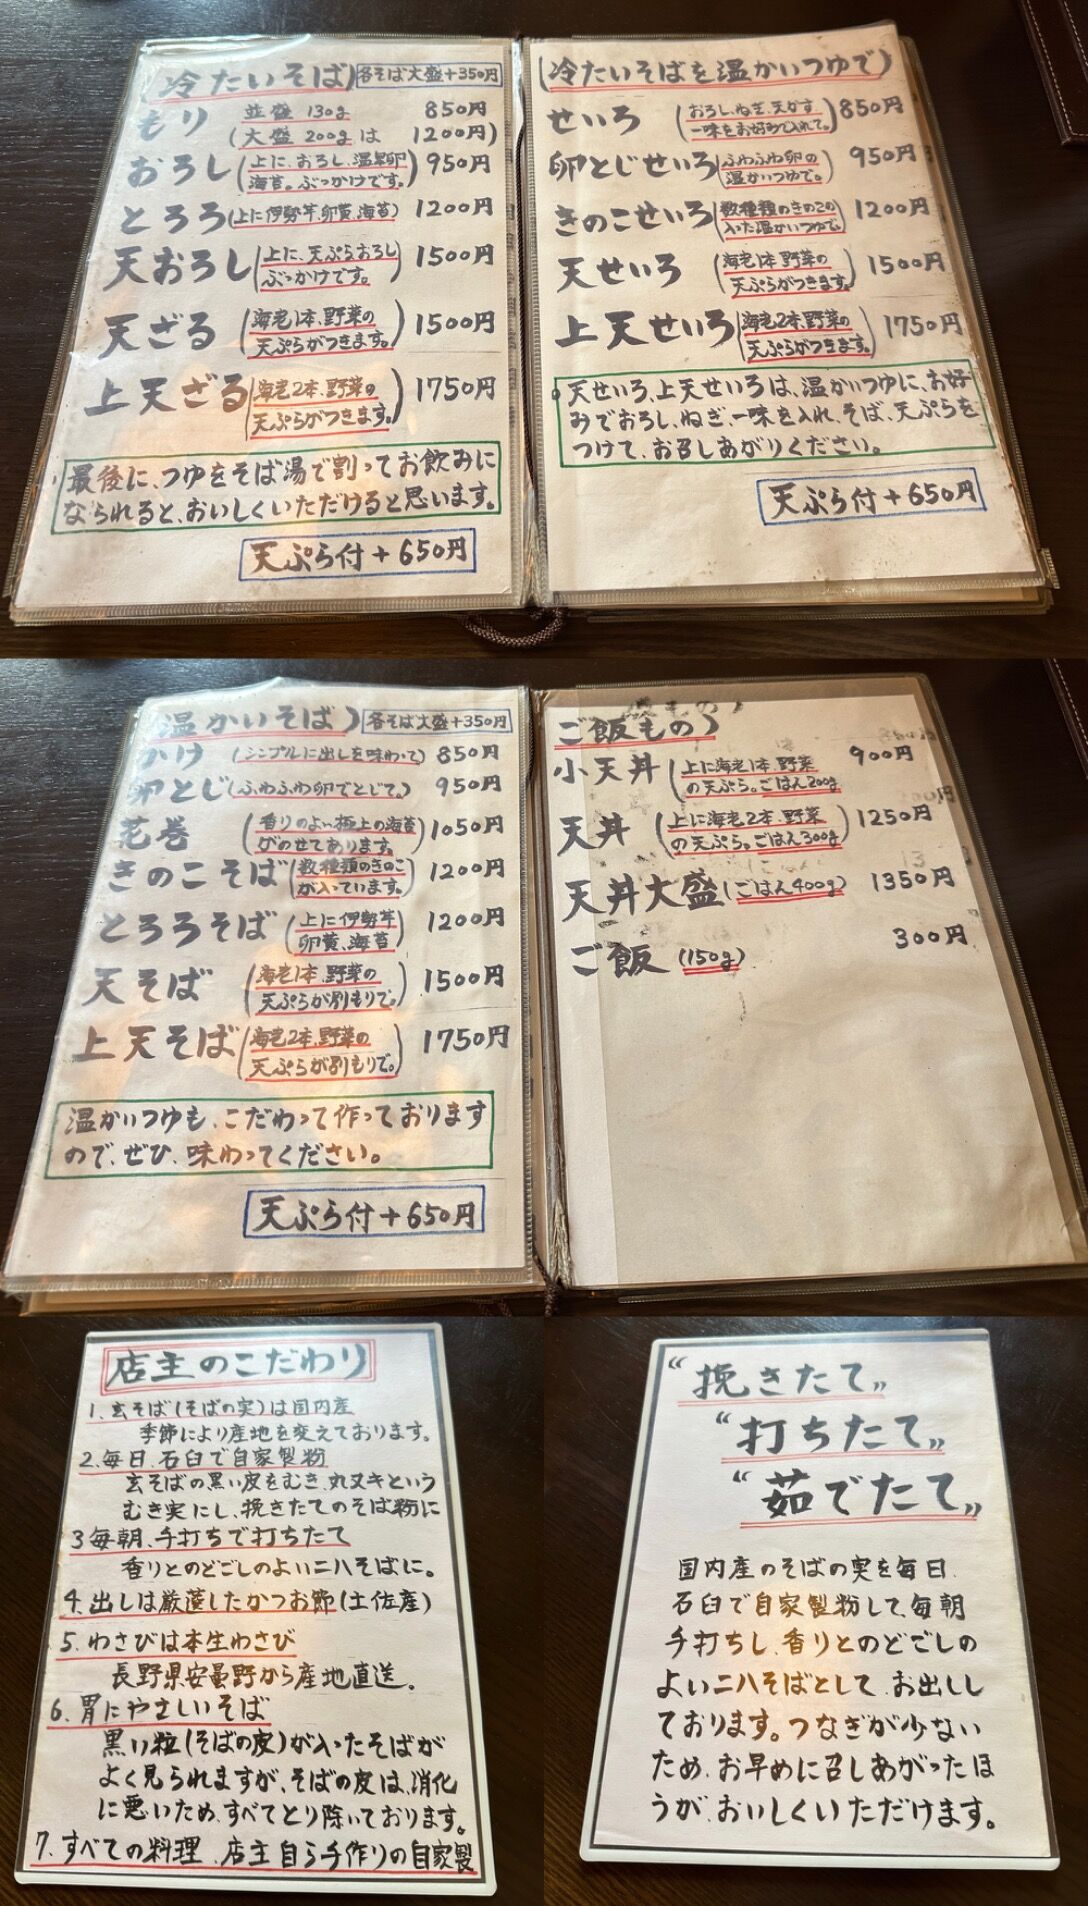 (冷たいそば) 各そば大盛+350円
もり 並盛 130g 850円
(大盛 200gは 1200円)
おろし (上に、おろし、温泉卵 950円
海苔。ぶっかけです。)
とろろ (上に伊勢芋、卵黄、海苔) 1200円
天おろし (上に、天ぷらおろし 1500円
ぶっかけです。)
天ざる (海老1本、野菜の 1500円
天ぷらがつきます。)
上天ざる (海老2本、野菜の 1750円
天ぷらがつきます。)
最後に、つゆをそば湯で割ってお飲みに
なられると、おいしくいただけると思います。
天ぷら付+650円
(冷たいそばを温かいつゆで)
せいろ (おろし、ねぎ、天かす 850円
一味をお好みで入れて。)
卵とじせいろ (ふわふわ卵の 950円
温かいつゆで。)
きのこせいろ (数種類のきのこの 1200円
入った温かいつゆで。)
天せいろ (海老1本、野菜の 1500円
天ぷらがつきます。)
上天せいろ (海老2本、野菜の 1750円
天ぷらがつきます。)
天せいろ、上天せいろは、温かいつゆに、お好
みでおろし、ねぎ、一味を入れ、そば、天ぷらを
つけて、お召しあがりください。
天ぷら付+650円
温かいそば) 各そば大盛+350円
かけ (シンプルに出しを味わって) 850円
卵とじ (ふわふわ卵でとじて。) 950円
花巻 (香りのよい極上の海苔 1050円
がのせてあります。)
きのこそば (数種類のきのこ 1200円
が入っています。)
とろろそば (上に伊勢芋 1200円
卵黄、海苔)
天そば (海老1本、野菜の 1500円
天ぷらが別もりで。)
上天そば (海老2本、野菜の 1750円
天ぷらが別もりで。)
温かいつゆも、こだわって作っております
ので、ぜひ、味わってください。
天ぷら付+650円
ご飯もの)
小天丼 (上に海老1本、野菜 900円
の天ぷら。ごはん200g)
天丼 (上に海老2本、野菜 1250円
の天ぷら。ごはん300g)
天丼大盛 (ごはん400g) 1350円
ご飯 (150g) 300円
店主のこだわり
1.玄そば(そばの実)は国内産
季節により産地を変えております。
2.毎日、石臼で自家製粉
玄そばの黒い皮をむき、丸ヌキという
むき実にし、挽きたてのそば粉に
3毎朝、手打ちで打ちたて
香りとのどごしのよい二八そばに。
4.出しは厳選したかつお節(土佐産)
5.わさびは本生わさび
長野県安曇野から産地直送。
6.胃にやさしいそば
黒い粒(そばの皮)が入ったそばが
よく見られますが、そばの皮は、消化
に悪いため、すべてとり除いております。
7.すべての料理、店主自ら手作りの自家製
“挽きたて”
“打ちたて”
“茹でたて”
国内産のそばの実を毎日、
石臼で自家製粉して、毎朝
手打ちし、香りとのどごしの
よい二八そばとして、お出しし
ております。つなぎが少ない
ため、お早めに召しあがったほ
うが、おいしくいただけます。